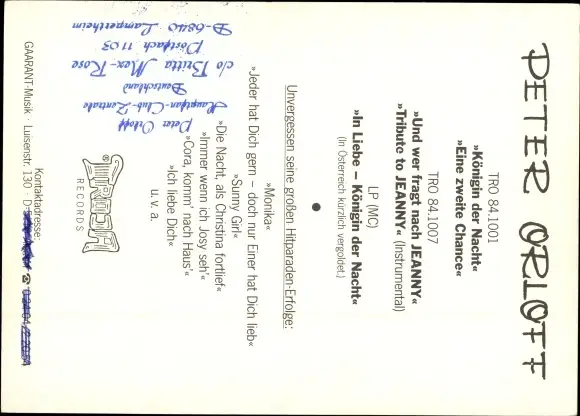 PETER ORLOFF
TRO 84.1001
»Königin der Nacht«
»Eine zweite Chance«
TRO 84.1007
»Und wer fragt nach JEANNY«
»Tribute to JEANNY« (Instrumental)
LP (MC)
»In Liebe – Königin der Nacht«
(In Österreich kürzlich vergoldet.)
Unvergessen seine großen Hitparaden-Erfolge:
»Monika«
»Sunny Girl«
»Jeder hat Dich gern – doch nur Einer hat Dich lieb«
»Die Nacht, als Christina fortlief«
»Immer wenn ich Josy seh'«
»Cora, komm' nach Haus'«
»Ich liebe Dich«
u. v. a.
RECORDS
Peter Orloff
Hauptfan-Club-Zentrale
Deutschland
c/o Britta Mex-Rose
Postfach 1103
D-6840 Lampertheim
Kontaktadresse:
GAARANT-Musik · Luisenstr. 130 · D-